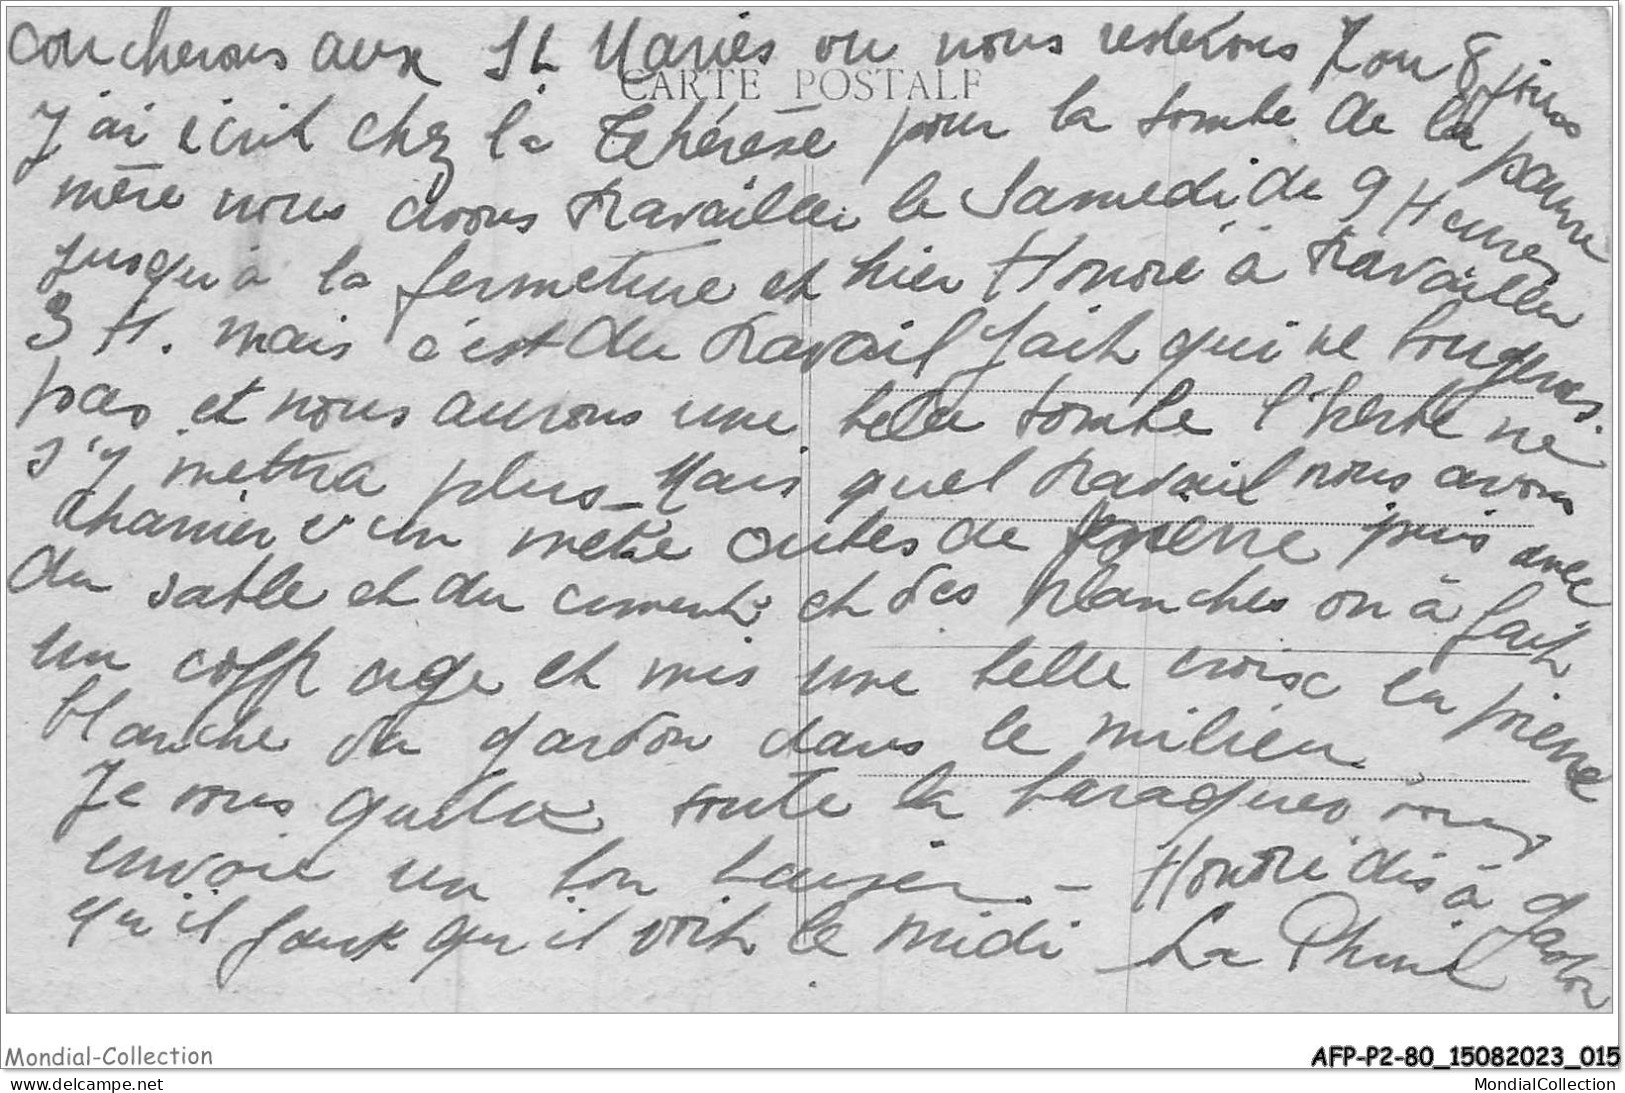 coucherons aux St Maries ou nous resterons 7 ou 8 jours
CARTE POSTALE
J'ai écrit chez la Tehérèse pour la tombe de la pauvre
mère nous avons travailler le Samedi de 9 Heures
jusqu'à la fermeture et hier Honoré à travailler
3 H. mais c'est du travail fait qui ne bougeras
pas et nous aurons une belle tombe l'herbe ne
s'y mettra plus - Mais quel travail nous avons
charrier un mètre cubes de pierre puis avec
du sable et du ciment et des planches on à fait
un coffrage et mis une belle croix en pierre
blanche du gardon dans le milieu.
Je vous quitte toute la baraques vous
envoie un bon baiser - Honoré dis à Gaston
qu'il faut qu'il voit le midi La Phine
Mondial-Collection
AFP-P2-80_15082023_015
www.delcampe.net
MondialCollection